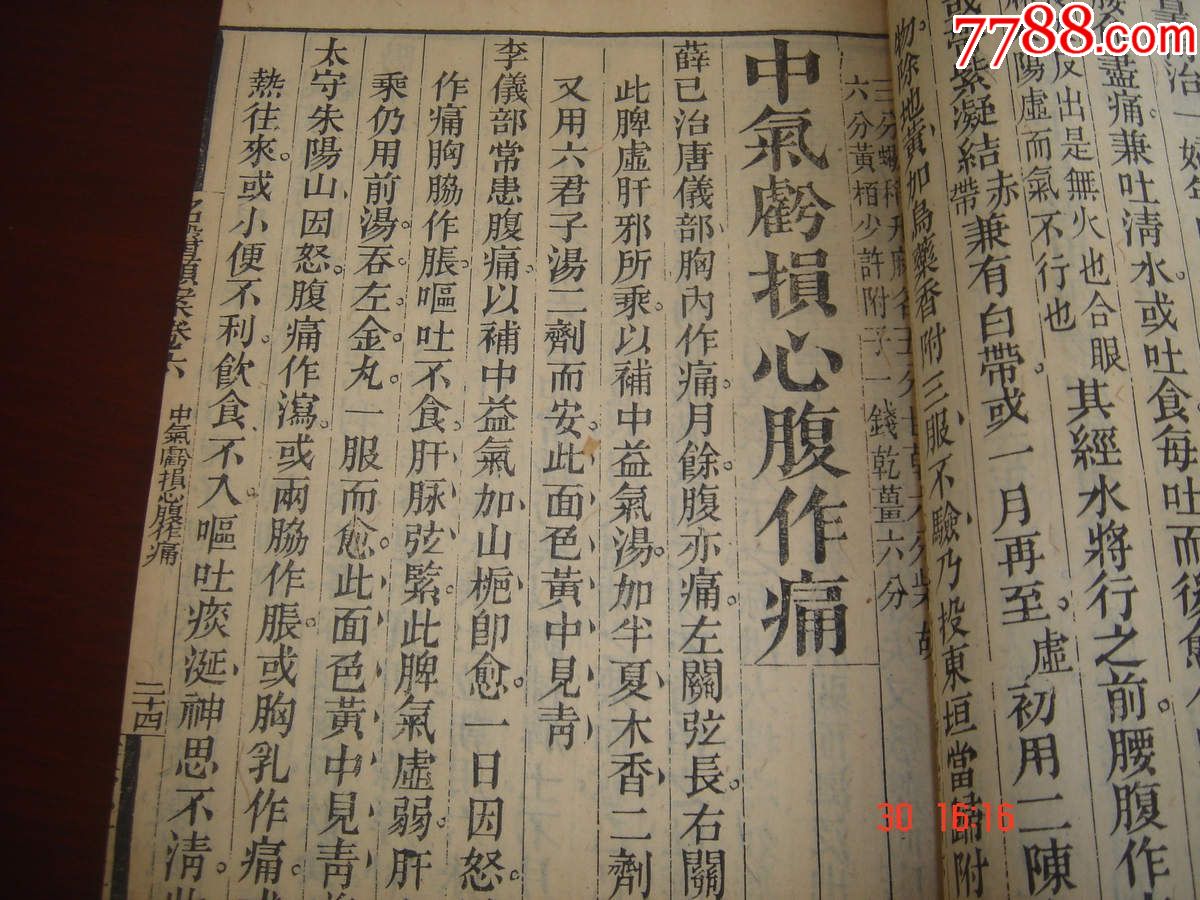 7788.com
治一婦年
腰令盡痛兼吐淸水或吐食每吐而後
反出是無火也合眼
陽虛而氣不行也
其經水將行之前腰腹作
紫凝結
赤帶
兼有白帶或一月再至
虛
初用二陳
物除地黃加烏藥香附三服不驗乃投東垣當歸附
六分黃栢少許附子一錢乾薑六分
中氣虧損心腹作痛
薛已治唐儀部胸內作痛月餘腹亦痛左關弦長右關
此脾虛肝邪所乘以補中益氣湯加半夏木香二劑
又用六君子湯二劑而安此面色黃中見靑
李儀部常患腹痛以補中益氣加山梔卽愈一日因怒
作痛胸脇作脹嘔吐不食肝脉弦緊此脾氣虛弱肝
乘仍用前湯吞左金丸一服而愈此面色黃中見靑
太守朱陽山因怒腹痛作瀉或兩脇作脹或胸乳作痛
熱往來或小便不利飲食不入嘔吐痰涎神思不淸
名醫類案卷六
中氣虧損心腹作痛
二十四
30 16:16